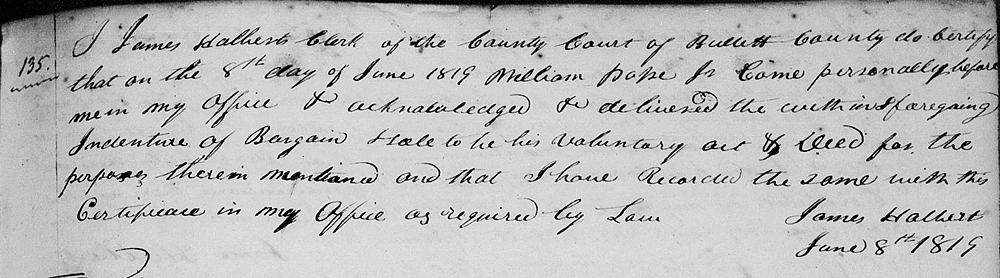 135.
I James Halbert Clerk of the County Court of Bullett County do Certify
that on the 8th day of June 1819 William Pope Jr Came personally before
me in my Office & acknowledged & delivered the within & foregoing
Indenture of Bargain & Sale to be his Voluntary act & Deed for the
purposes therein mentioned and that I have Recorded the same with this
Certificate in my Office as required by Law
James Halbert
June 8th 1819